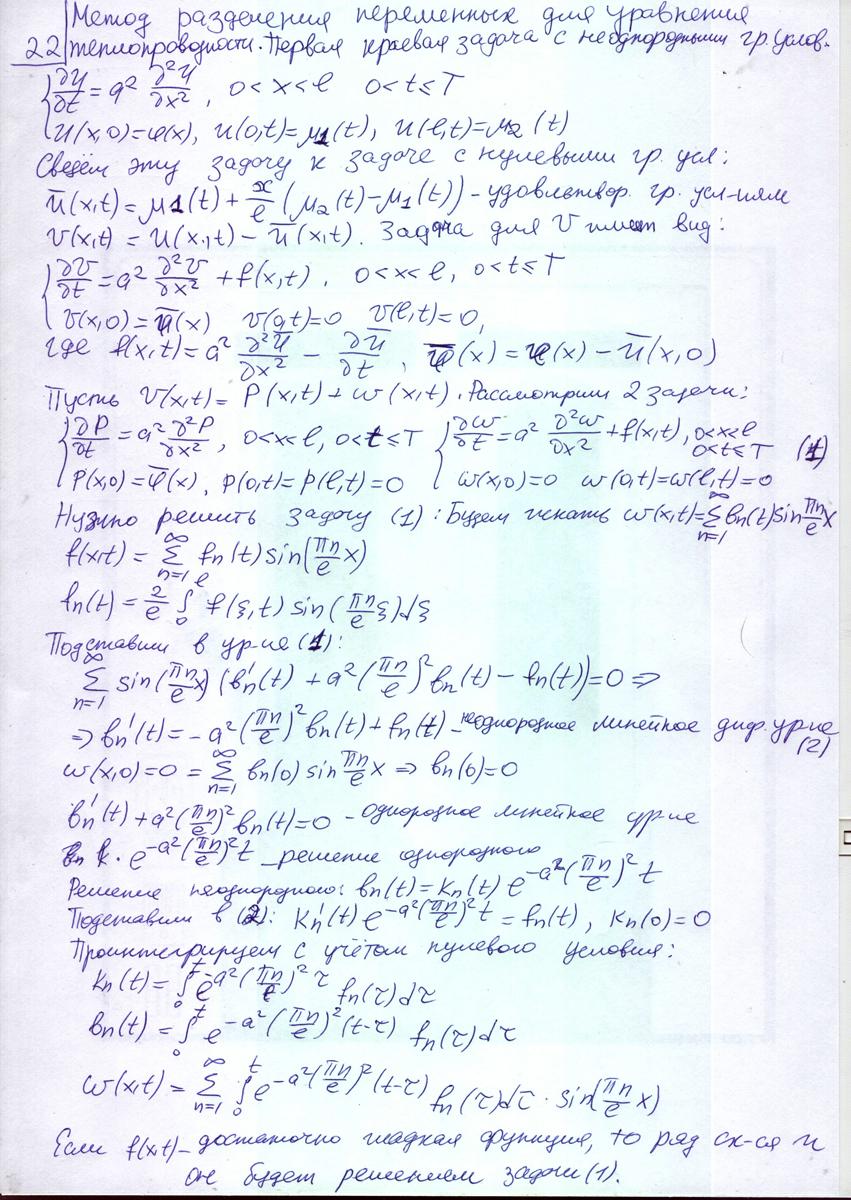 22 Метод разделения переменных для уравнения
теплопроводности. Первая краевая задача с неоднородными гр. услов.
{ ∂u/∂t = a² ∂²u/∂x², 0<x<l 0<t≤T
u(x,0)=φ(x), u(0,t)=μ₁(t), u(l,t)=μ₂(t)
Сведём эту задачу к задаче с нулевыми гр. усл:
ū(x,t)=μ₁(t)+x/l(μ₂(t)-μ₁(t)) - удовлетвор. гр. усл-иям
v(x,t) = u(x,t) - ū(x,t). Задача для v имеет вид:
{ ∂v/∂t = a² ∂²v/∂x² + f(x,t), 0<x<l, 0<t≤T
v(x,0)=φ̄(x) v(0,t)=0 v(l,t)=0,
где f(x,t) = a² ∂²ū/∂x² - ∂ū/∂t, φ̄(x) = φ(x) - ū(x,0)
Пусть v(x,t) = p(x,t) + w(x,t). Рассмотрим 2 задачи:
{ ∂p/∂t = a² ∂²p/∂x², 0<x<l, 0<t≤T { ∂w/∂t = a² ∂²w/∂x² + f(x,t), 0<x<l 0<t≤T (1)
p(x,0)=φ̄(x), p(0,t)=p(l,t)=0 w(x,0)=0 w(0,t)=w(l,t)=0
Нужно решить задачу (1): Будем искать w(x,t)=∑_{n=1}^∞ bn(t) sin πn/l x
f(x,t) = ∑_{n=1}^∞ fn(t) sin(πn/l x)
fn(t) = 2/l ∫₀^l f(ξ,t) sin(πn/l ξ)dξ
Подставим в ур-ие (1):
∑_{n=1}^∞ sin(πn/l x) (bn'(t) + a²(πn/l)² bn(t) - fn(t))=0 ⇒
⇒ bn'(t) = -a²(πn/l)² bn(t) + fn(t) - неоднородное линейное диф. ур-ие (2)
w(x,0)=0 = ∑_{n=1}^∞ bn(0) sin πn/l x ⇒ bn(0)=0
bn'(t) + a²(πn/l)² bn(t)=0 - однородное линейное ур-ие
k · e^{-a²(πn/l)² t} - решение однородного
Решение неоднородного: bn(t) = kn(t) e^{-a²(πn/l)² t}
Подставим в (2): kn'(t) e^{-a²(πn/l)² t} = fn(t), kn(0)=0
Проинтегрируем с учётом нулевого условия:
kn(t) = ∫₀^t e^{a²(πn/l)² τ} fn(τ)dτ
bn(t) = ∫₀^t e^{-a²(πn/l)²(t-τ)} fn(τ)dτ
w(x,t) = ∑_{n=1}^∞ ∫₀^t e^{-a²(πn/l)²(t-τ)} fn(τ)dτ · sin(πn/l x)
Если f(x,t) - достаточно гладкая функция, то ряд сх-ся и
он будет решением задачи (1).